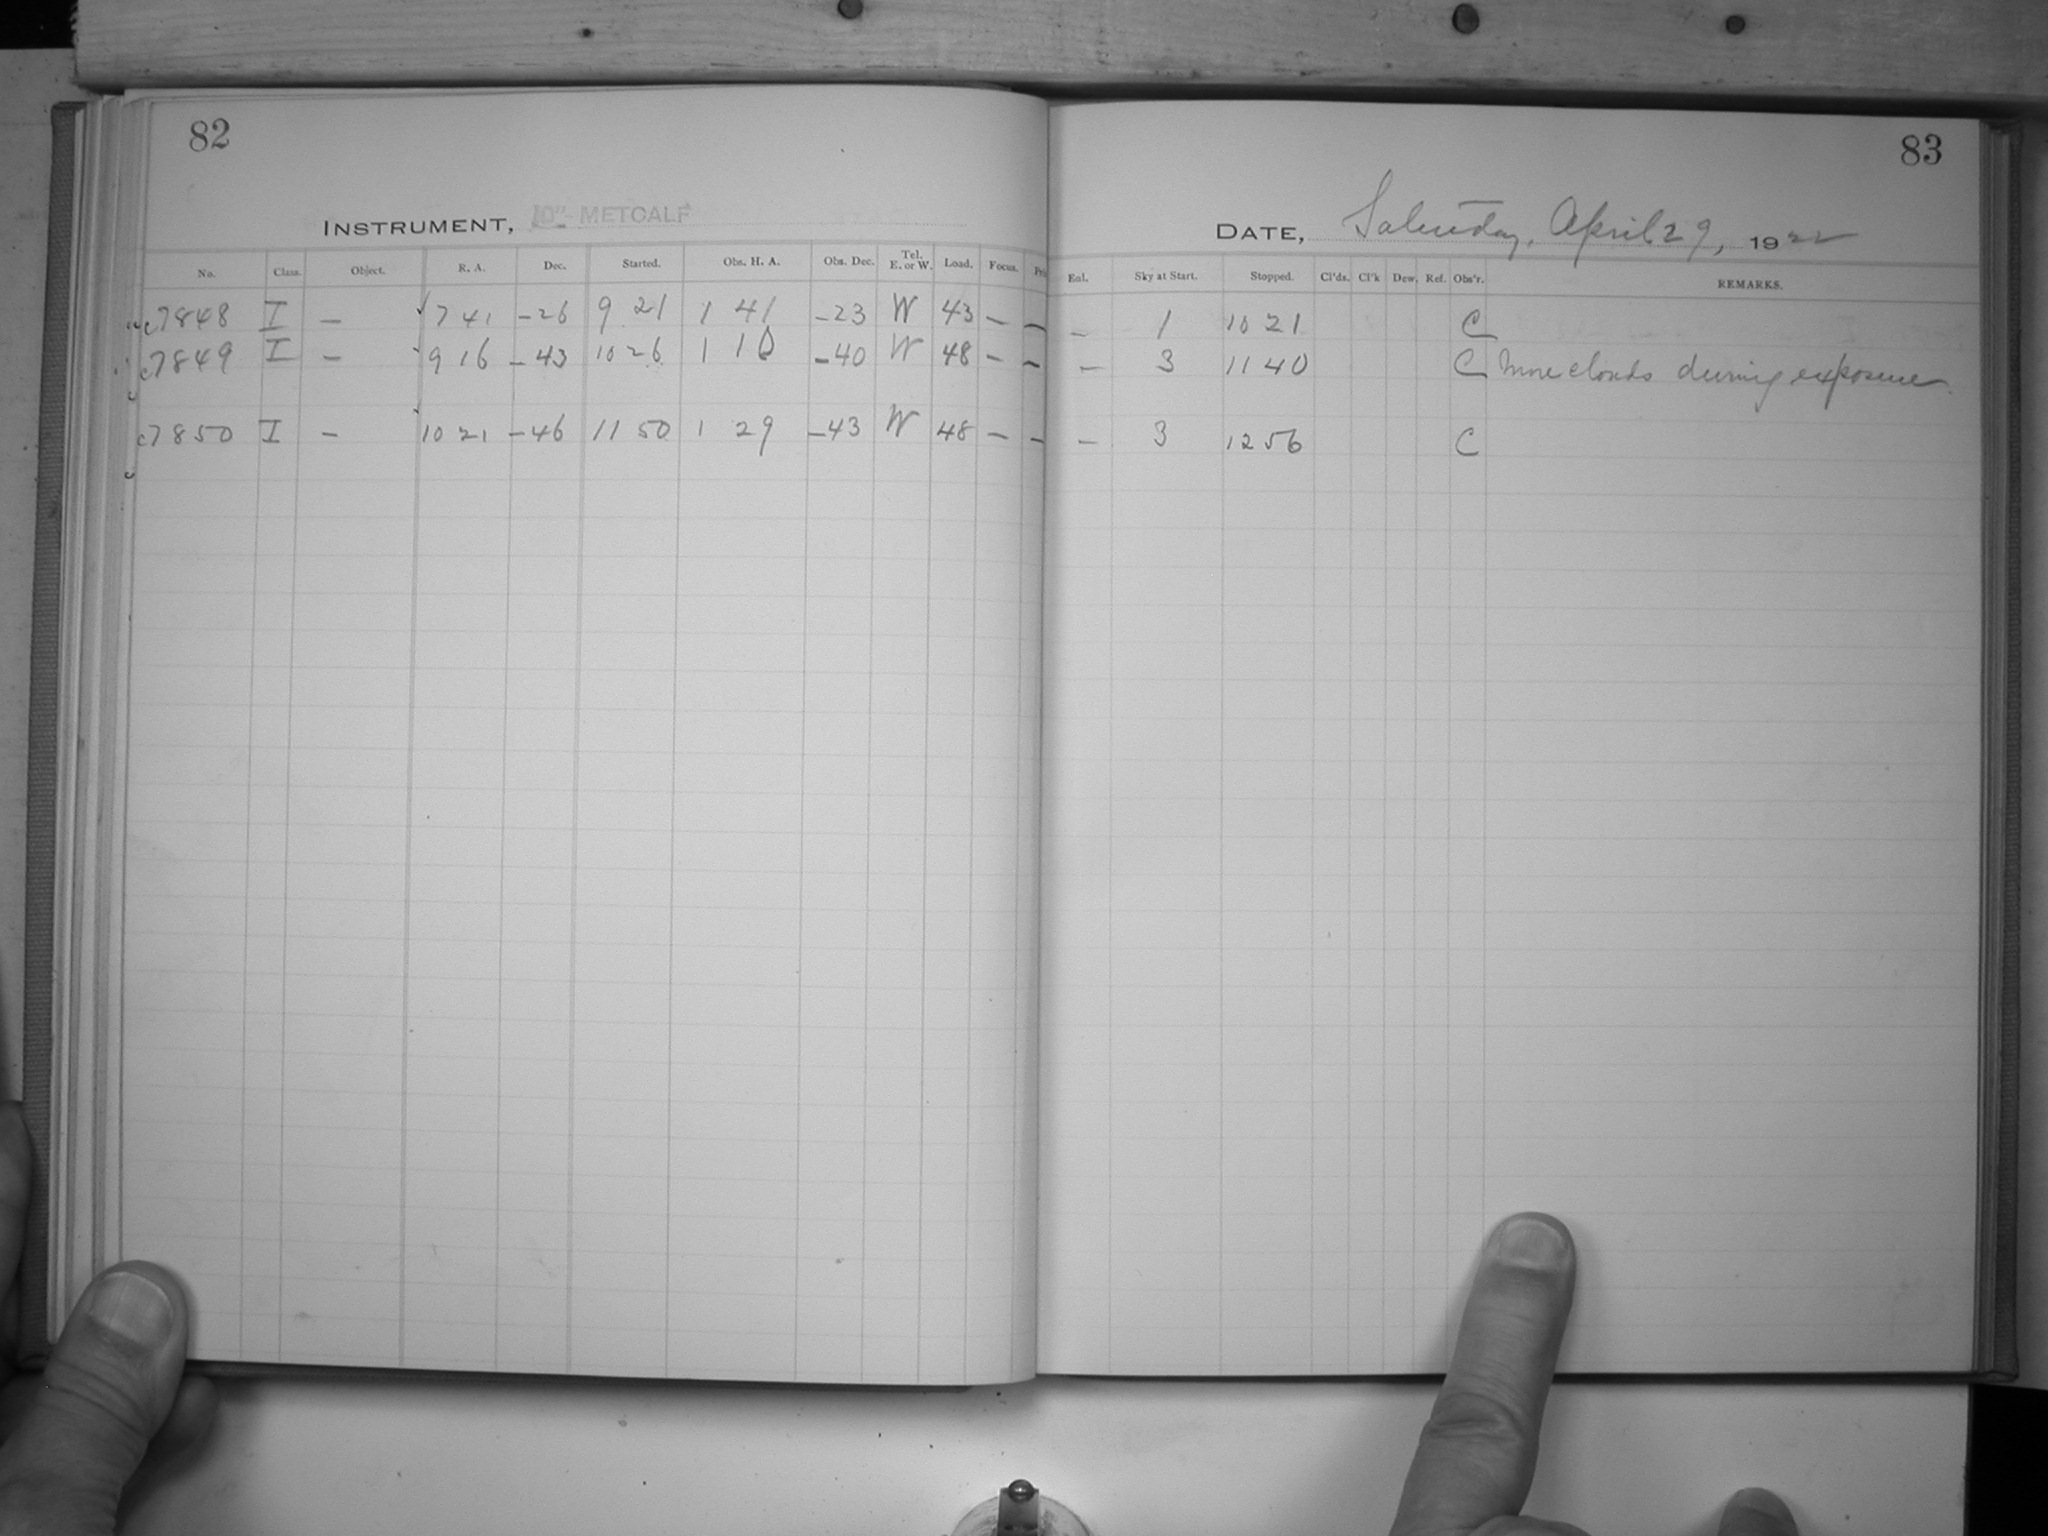 82
INSTRUMENT, 10" METCALF
No. Class. Object. R. A. Dec. Started. Obs. H. A. Obs. Dec. Tel. E. or W. Load. Focus. Pri
c7848 I – √7 41 –26 9 21 1 41 –23 W 43 – –
c7849 I – 9 16 –43 10 26 1 10 –40 W 48 – –
c7850 I – 10 21 –46 11 50 1 29 –43 W 48 – –
83
DATE, Saturday, April 29, 1922
Enl. Sky at Start. Stopped. Cl'ds. Cl'k Dew. Ref. Obs'r. REMARKS.
– 1 10 21 C
– 3 11 40 C More clouds during exposure
– 3 12 56 C